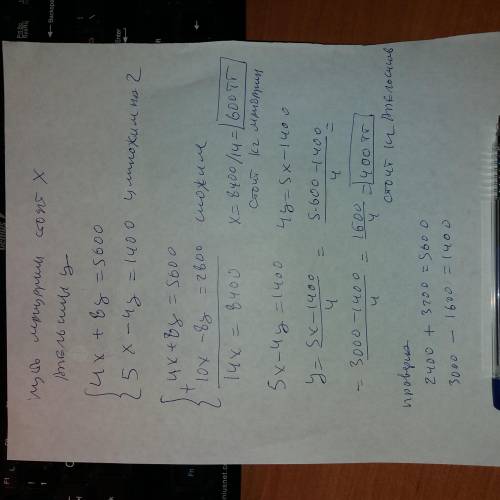 пусть мандарины стоят x
Апельсины y
4x + 8y = 5600
5x - 4y = 1400 умножим на 2
4x + 8y = 5600
+ 10x - 8y = 2800 сложим
14x = 8400 x = 8400/14 = 600 тг
стоит кг мандарин
5x - 4y = 1400 4y = 5x - 1400
y = 5x - 1400 / 4 = 5·600 - 1400 / 4 =
= 3000 - 1400 / 4 = 1600 / 4 = 400 тг
стоит кг Апельсинов
проверка
2400 + 3200 = 5600
3000 - 1600 = 1400